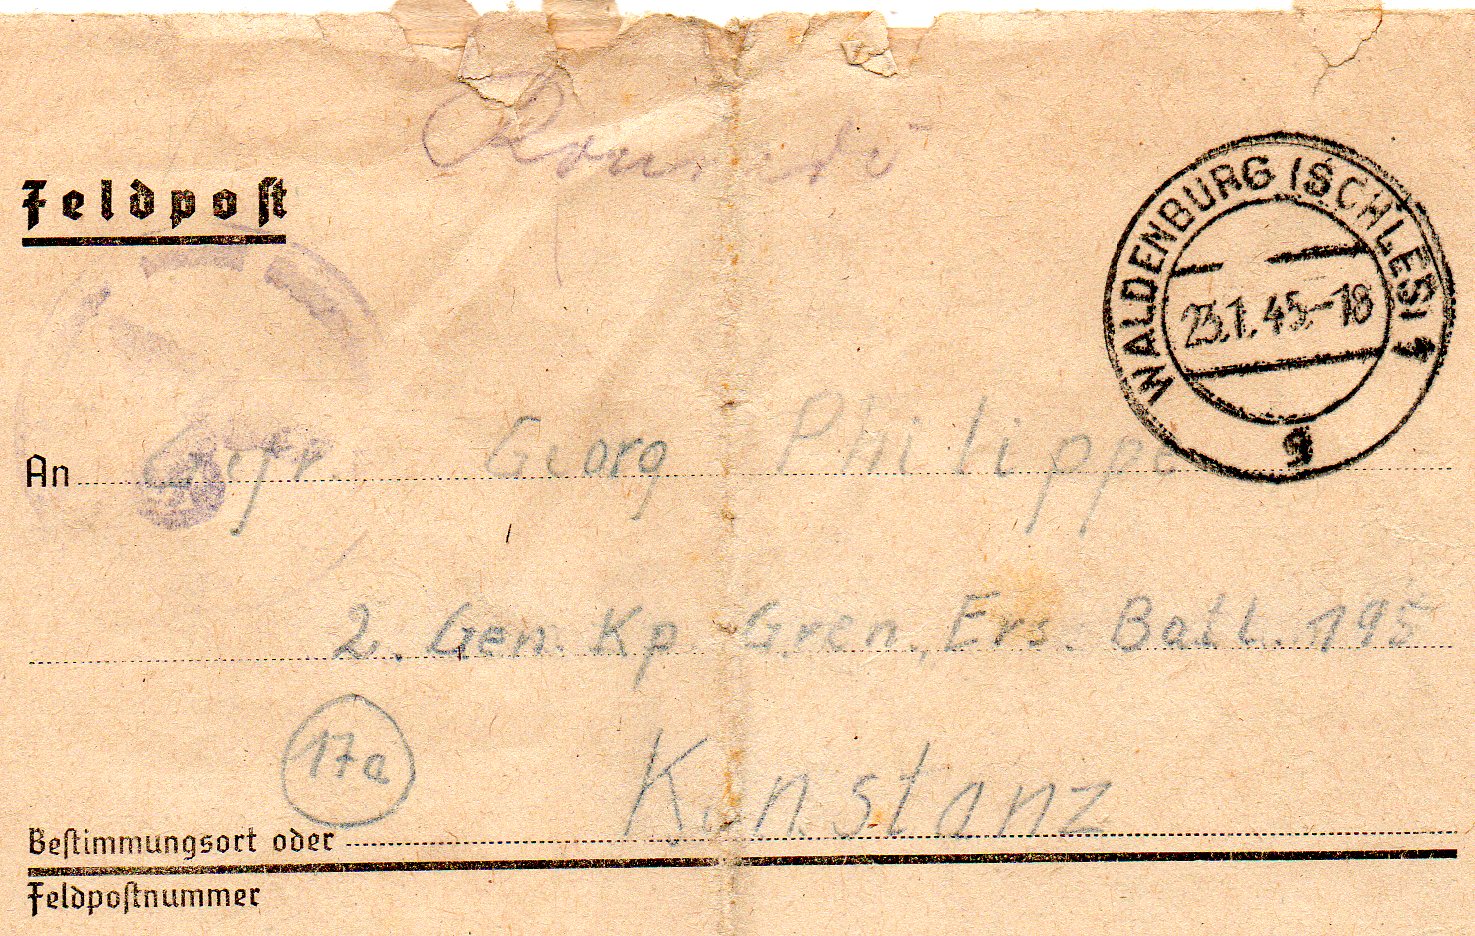 Feldpost
WALDENBURG (SCHLES) 1
23.1.45.-18
g
An Gefr. Georg Philipp
2. Gen. Kp. Gren. Ers. Batl. 195
17a
Konstanz
Bestimmungsort oder
Feldpostnummer